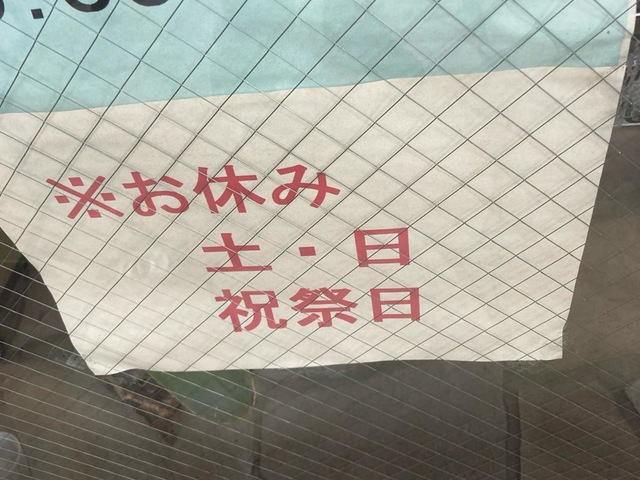 ※お休み
土・日
祝祭日